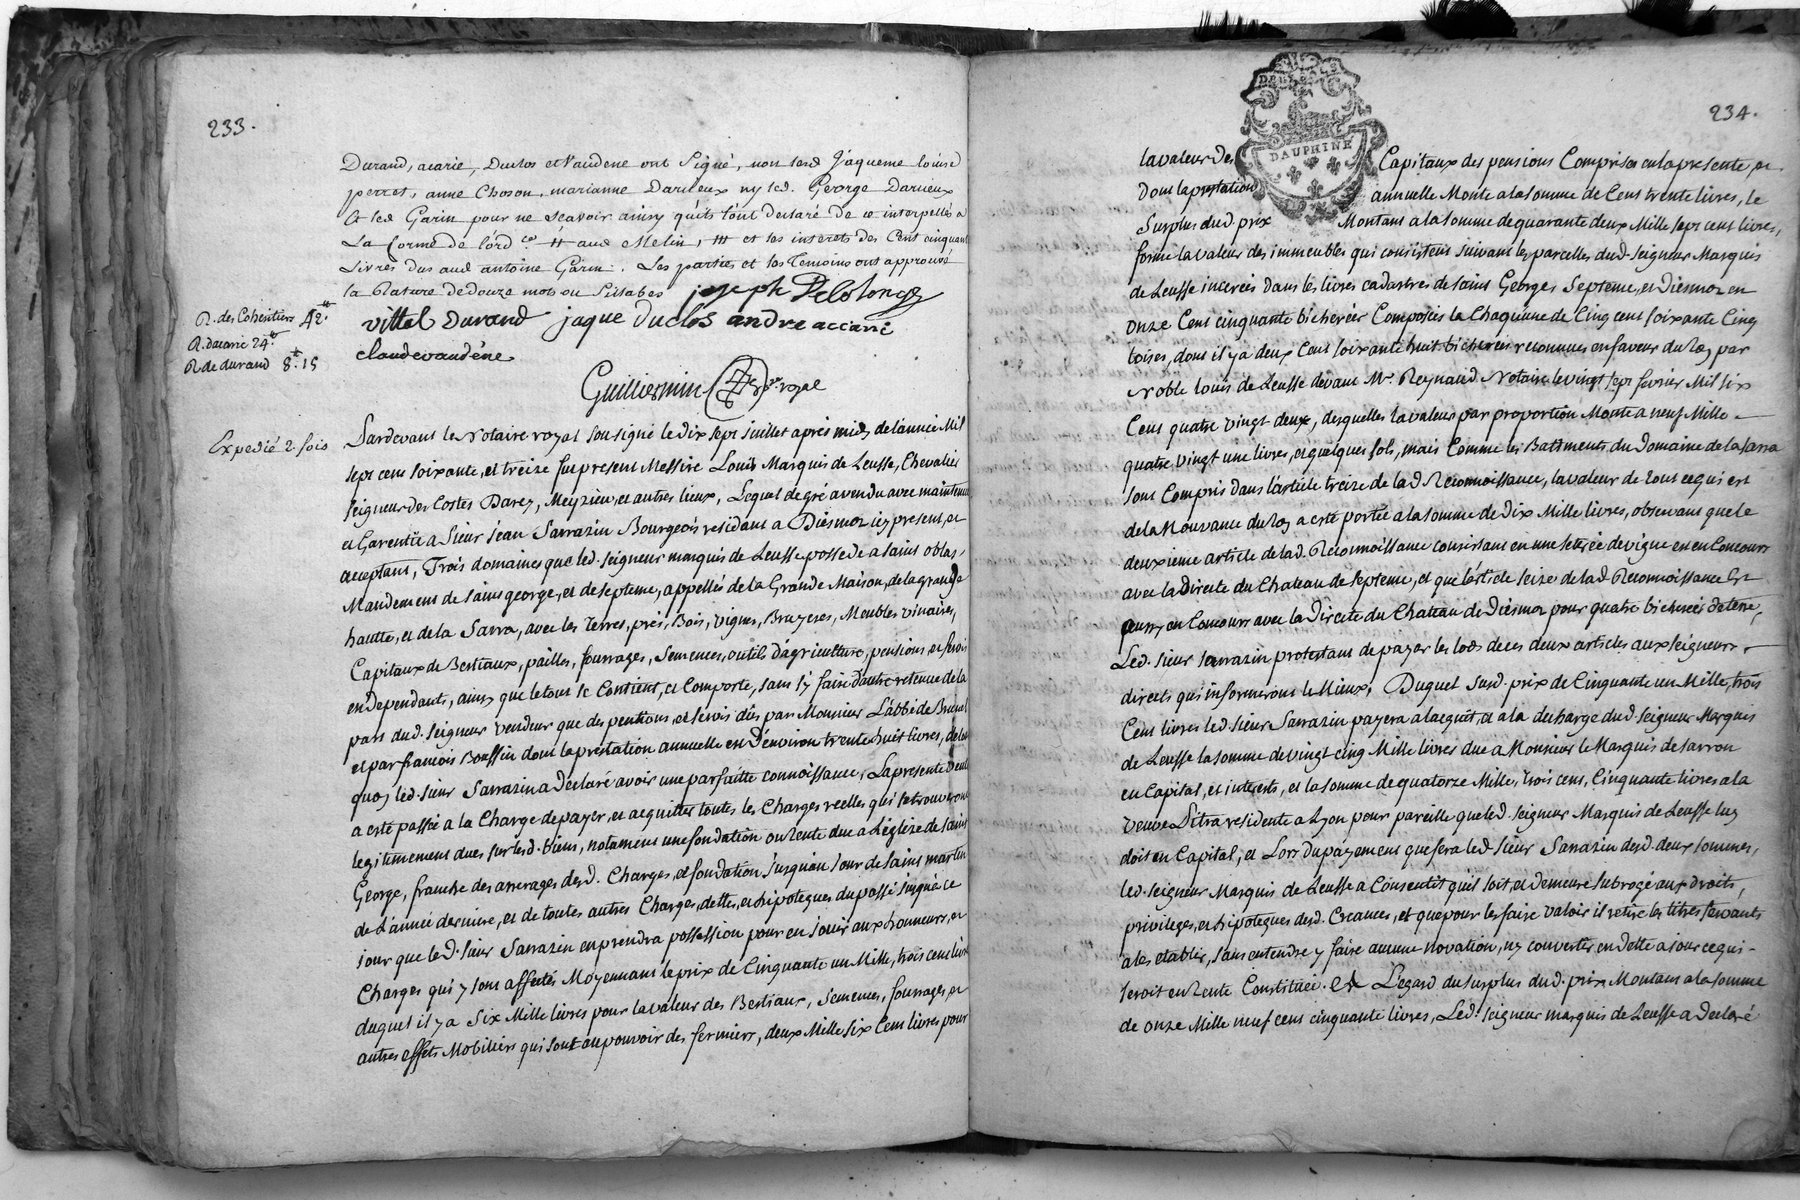 233.
Durand, acarie, Duclos et Vaudene ont Signé, non lesd Jaqueme louise
perret, anne Choson, marianne Darieux ny led. George Darieux
Et led Garin pour ne scavoir ainsy qu'ils l'ont declaré de ce interpellés a
La forme de l'ord ce # aud Melin, ## et les interets des Cent cinquante
Livres dus aud antoine Garin. Les parties et les Temoins ont approuvé
la Rature de douze mots ou Sillabes joseph Delolonge
R. des Cohéritiers 42.
vittel Durand jaque duclos andre accarie
R. dacarie 24.
claude vaudéne
R. de durand 8. 15
Guilliermin Nre royal
Expedié 2 fois
Pardevant le Notaire royal Sousigné le dix sept juillet après midy de l'année Mil
sept cens soixante, et treize fut present Messire Louis Marquis de Leusse, Chevalier
seigneur des Costes Darey, Meyzieu, et autres lieux, Lequel de gré a vendu avec maintenue
et Garentie a Sieur Jean Sarrazin Bourgeois residant a Diesmoz icy present, et
acceptant, Trois domaines que led. seigneur marquis de Leusse possede a saint oblas,
Mandement de saint george, et de septeme, appellés de la Grande Maison, de la grange
hautte, et de la Sarra, avec les terres, prés, Bois, vignes, Bruyeres, Meubles vinaires,
Capitaux de Bestiaux, pailles, fourrages, semences, outils d'agriculture, pensions, et servis
en dependants, ainsy que le tout se Contient, et Comporte, sans s'y faire d'autre retenue de la
part dud. seigneur vendeur que des pentions, et servis dûs par Monsieur L'abbé de Brunel
et par francois Boussin dont la prestation annuelle est d'environ trente huit livres, de la
quoy led. sieur Sarrazin a declaré avoir une parfaitte connoissance, La presente vente
a esté passée a la Charge de payer, et acquitter toutes les Charges réelles qui se trouveront
legitimement dues sur lesd. biens, notament une fondation ou rente due a L'église de saint
George, franche des arrerages desd. Charges, et fondation jusqu'au jour de saint martin
de L'année derniere, et de toutes autres Charges, dettes, et hipoteques du passé jusqu'a ce
jour que led. sieur Sarrazin en prendra possession pour en jouir aux honneurs, et
Charges qui y sont affectés Moyennant le prix de Cinquante un Mille, trois cens livres
duquel il y a Six Mille livres pour la valeur des Bestiaux, semences, fourrages, et
autres effets Mobiliers qui sont au pouvoir des fermiers, deux Mille six Cens livres pour
234.
DEUX SOLS
DAUPHINE
la valeur des Capitaux des pensions Comprises en la presente, et
dont la prestation annuelle Monte a la somme de Cent trente livres, le
Surplus dud. prix Montant a la somme de quarante deux Mille sept cent livres,
forme la valeur des immeubles qui consistent suivant les parcelles dud. seigneur Marquis
de Leusse incerées dans les livres cadastres de saint Georges Septeme, et Diesmoz en
onze Cent cinquante bicherées Composées la Chaqu'une de Cinq cent soixante Cinq
toises, dont il y a deux Cent soixante huit bicherées reconnues en faveur du Roy par
Noble Louis de Leusse devant Me Reynaud Notaire le vingt sept fevrier Mil six
Cens quatre vingt deux, desquelles la valeur par proportion Monte a neuf Mille
quatre vingt une livres, et quelques sols, mais Comme les Batiments du Domaine de la Sarra
sont Compris dans l'article treize de lad Reconnoissance, la valeur de tout ce qui est
de la Mouvance du Roy a esté portée a la somme de dix Mille livres, observant que le
deuxieme article de lad. Reconnoissance consistant en une seterée de vigne est en Concours
avec la Directe du Chateau de septeme, et que l'article seize de lad Reconnoissance Est
aussy en Concours avec la Directe du Chateau de Diesmoz pour quatre bicherées de terre,
Led. sieur sarrazin protestant de payer les lods de ces deux articles aux seigneurs
directs qui informeront le Mieux, Duquel susd. prix de Cinquante un Mille, trois
Cens livres led. sieur Sarrazin payera a l'acquit, et a la decharge dud. seigneur Marquis
de Leusse la somme de vingt cinq Mille livres due a Monsieur le Marquis de sarron
en Capital, et interets, et la somme de quatorze Mille, trois cens, Cinquante livres a la
veuve Litra residente a Lyon pour pareille que led. seigneur Marquis de Leusse luy
doit en Capital, et Lors du payement que fera led. sieur Sarrazin desd. deux sommes,
led. seigneur Marquis de Leusse a Consentit qu'il soit, et demeure subrogé aux droits,
privileges, et hipoteques desd. Creances, et que pour les faire valoir il retire les titres servants
a les etablir, sans entendre y faire aucune novation, ny convertir en dette a jour ce qui
seroit en rente Constituée. Et a L'egard du surplus dud. prix Montant a la somme
de onze Mille neuf cens cinquante livres, Led. seigneur marquis de Leusse a declaré